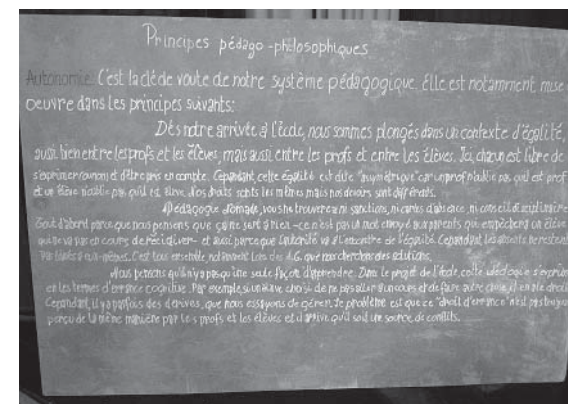 Principes pédago-philosophiques
Autonomie C'est la clé de voute de notre système pédagogique. Elle est notamment mise
oeuvre dans les principes suivants:
Dès notre arrivée à l'école, nous sommes plongés dans un contexte d'égalité,
aussi bien entre les profs et les élèves, mais aussi entre les profs et entre les élèves. Ici, chacun est libre de
s'exprimer et d'être pris en compte. Cependant cette égalité est dite "asymétrique" car un prof n'oublie pas qu'il est prof
et un élève n'oublie pas qu'il est élève. Nos droits sont les mêmes mais nos devoirs sont différents.
Pédagogie vous ne trouverez ni sanctions, ni cartes d'absence, ni conseil disciplinaire
Tout d'abord parce que nous pensons que ça ne sert à rien - ce n'est pas un mot envoyé aux parents qui empêchera un élève
qui ne va pas en cours de récidiver - et aussi parce que l'autorité va à l'encontre de l'égalité. Cependant les absents ne restent
pas eux-mêmes. C'est tous ensemble, notamment lors des A.G. que nous cherchons des solutions.
Nous pensons qu'il n'y a pas qu'une seule façon d'apprendre. Dans le projet de l'école, cette idéologie s'exprime
en les termes d'errance cognitive. Par exemple si un élève choisi de ne pas aller à un cours et de faire autre chose, il en a le droit
Cependant, il y a parfois des dérives, que nous essayons de gérer. Le problème est que ce "droit d'errance" n'est pas toujours
perçu de la même manière par les profs et les élèves et il arrive qu'il soit une source de conflits.